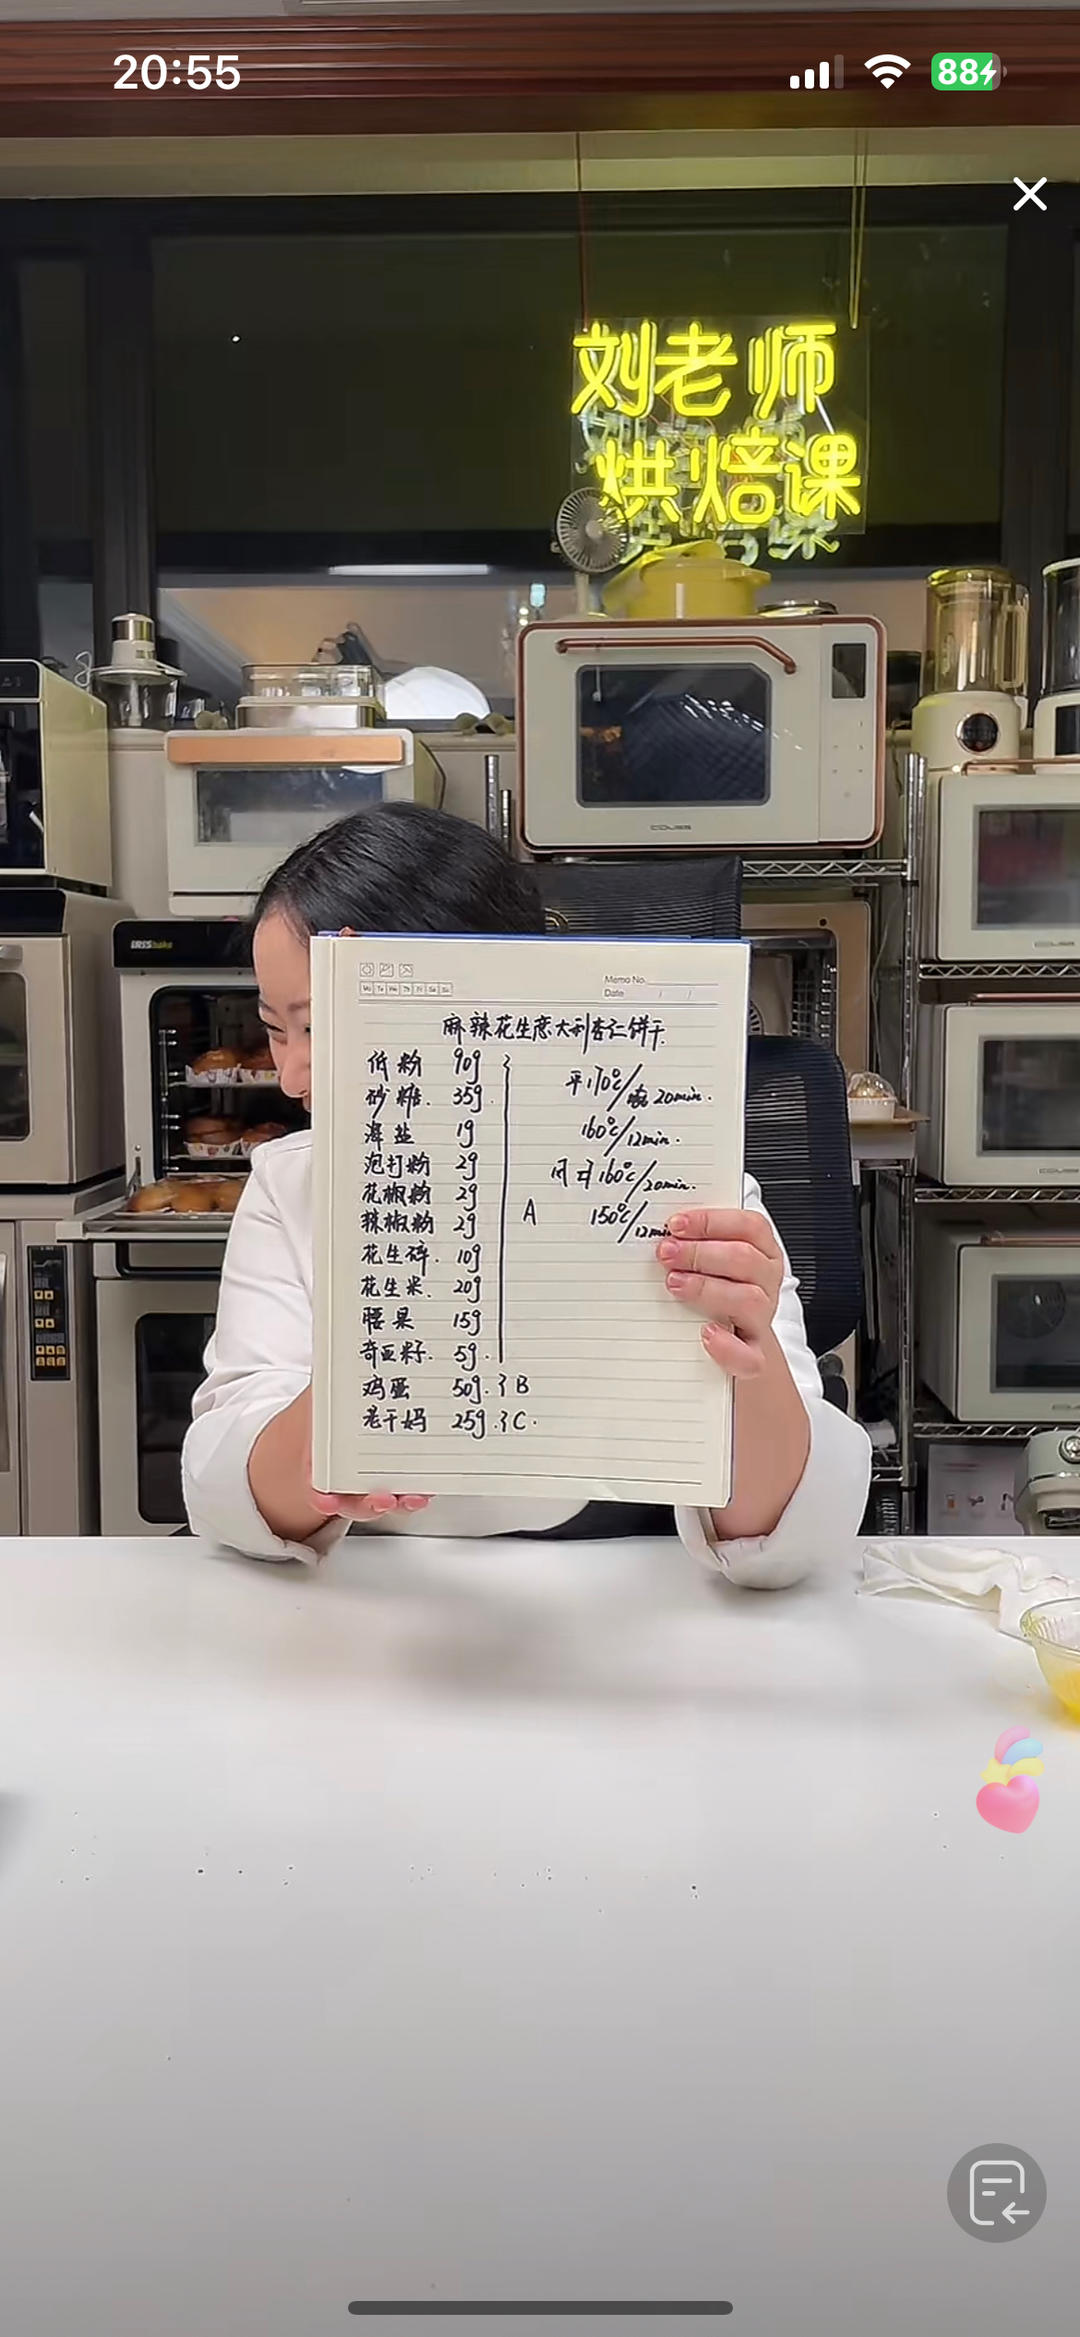 20:55
88
刘老师
烘焙课
COUSS
Memo No.
Mo Tu We Th Fr Sa Su
Date / /
麻辣花生意大利杏仁饼干.
低粉 90g
平170℃/20min.
砂糖. 35g.
160℃/12min.
海盐 1g
泡打粉 2g
160℃/20min.
花椒粉 2g
辣椒粉 2g
A
150℃/12min
花生碎. 10g
花生米. 20g
腰果 15g
奇亚籽. 5g.
鸡蛋 50g. } B
老干妈 25g. } C.